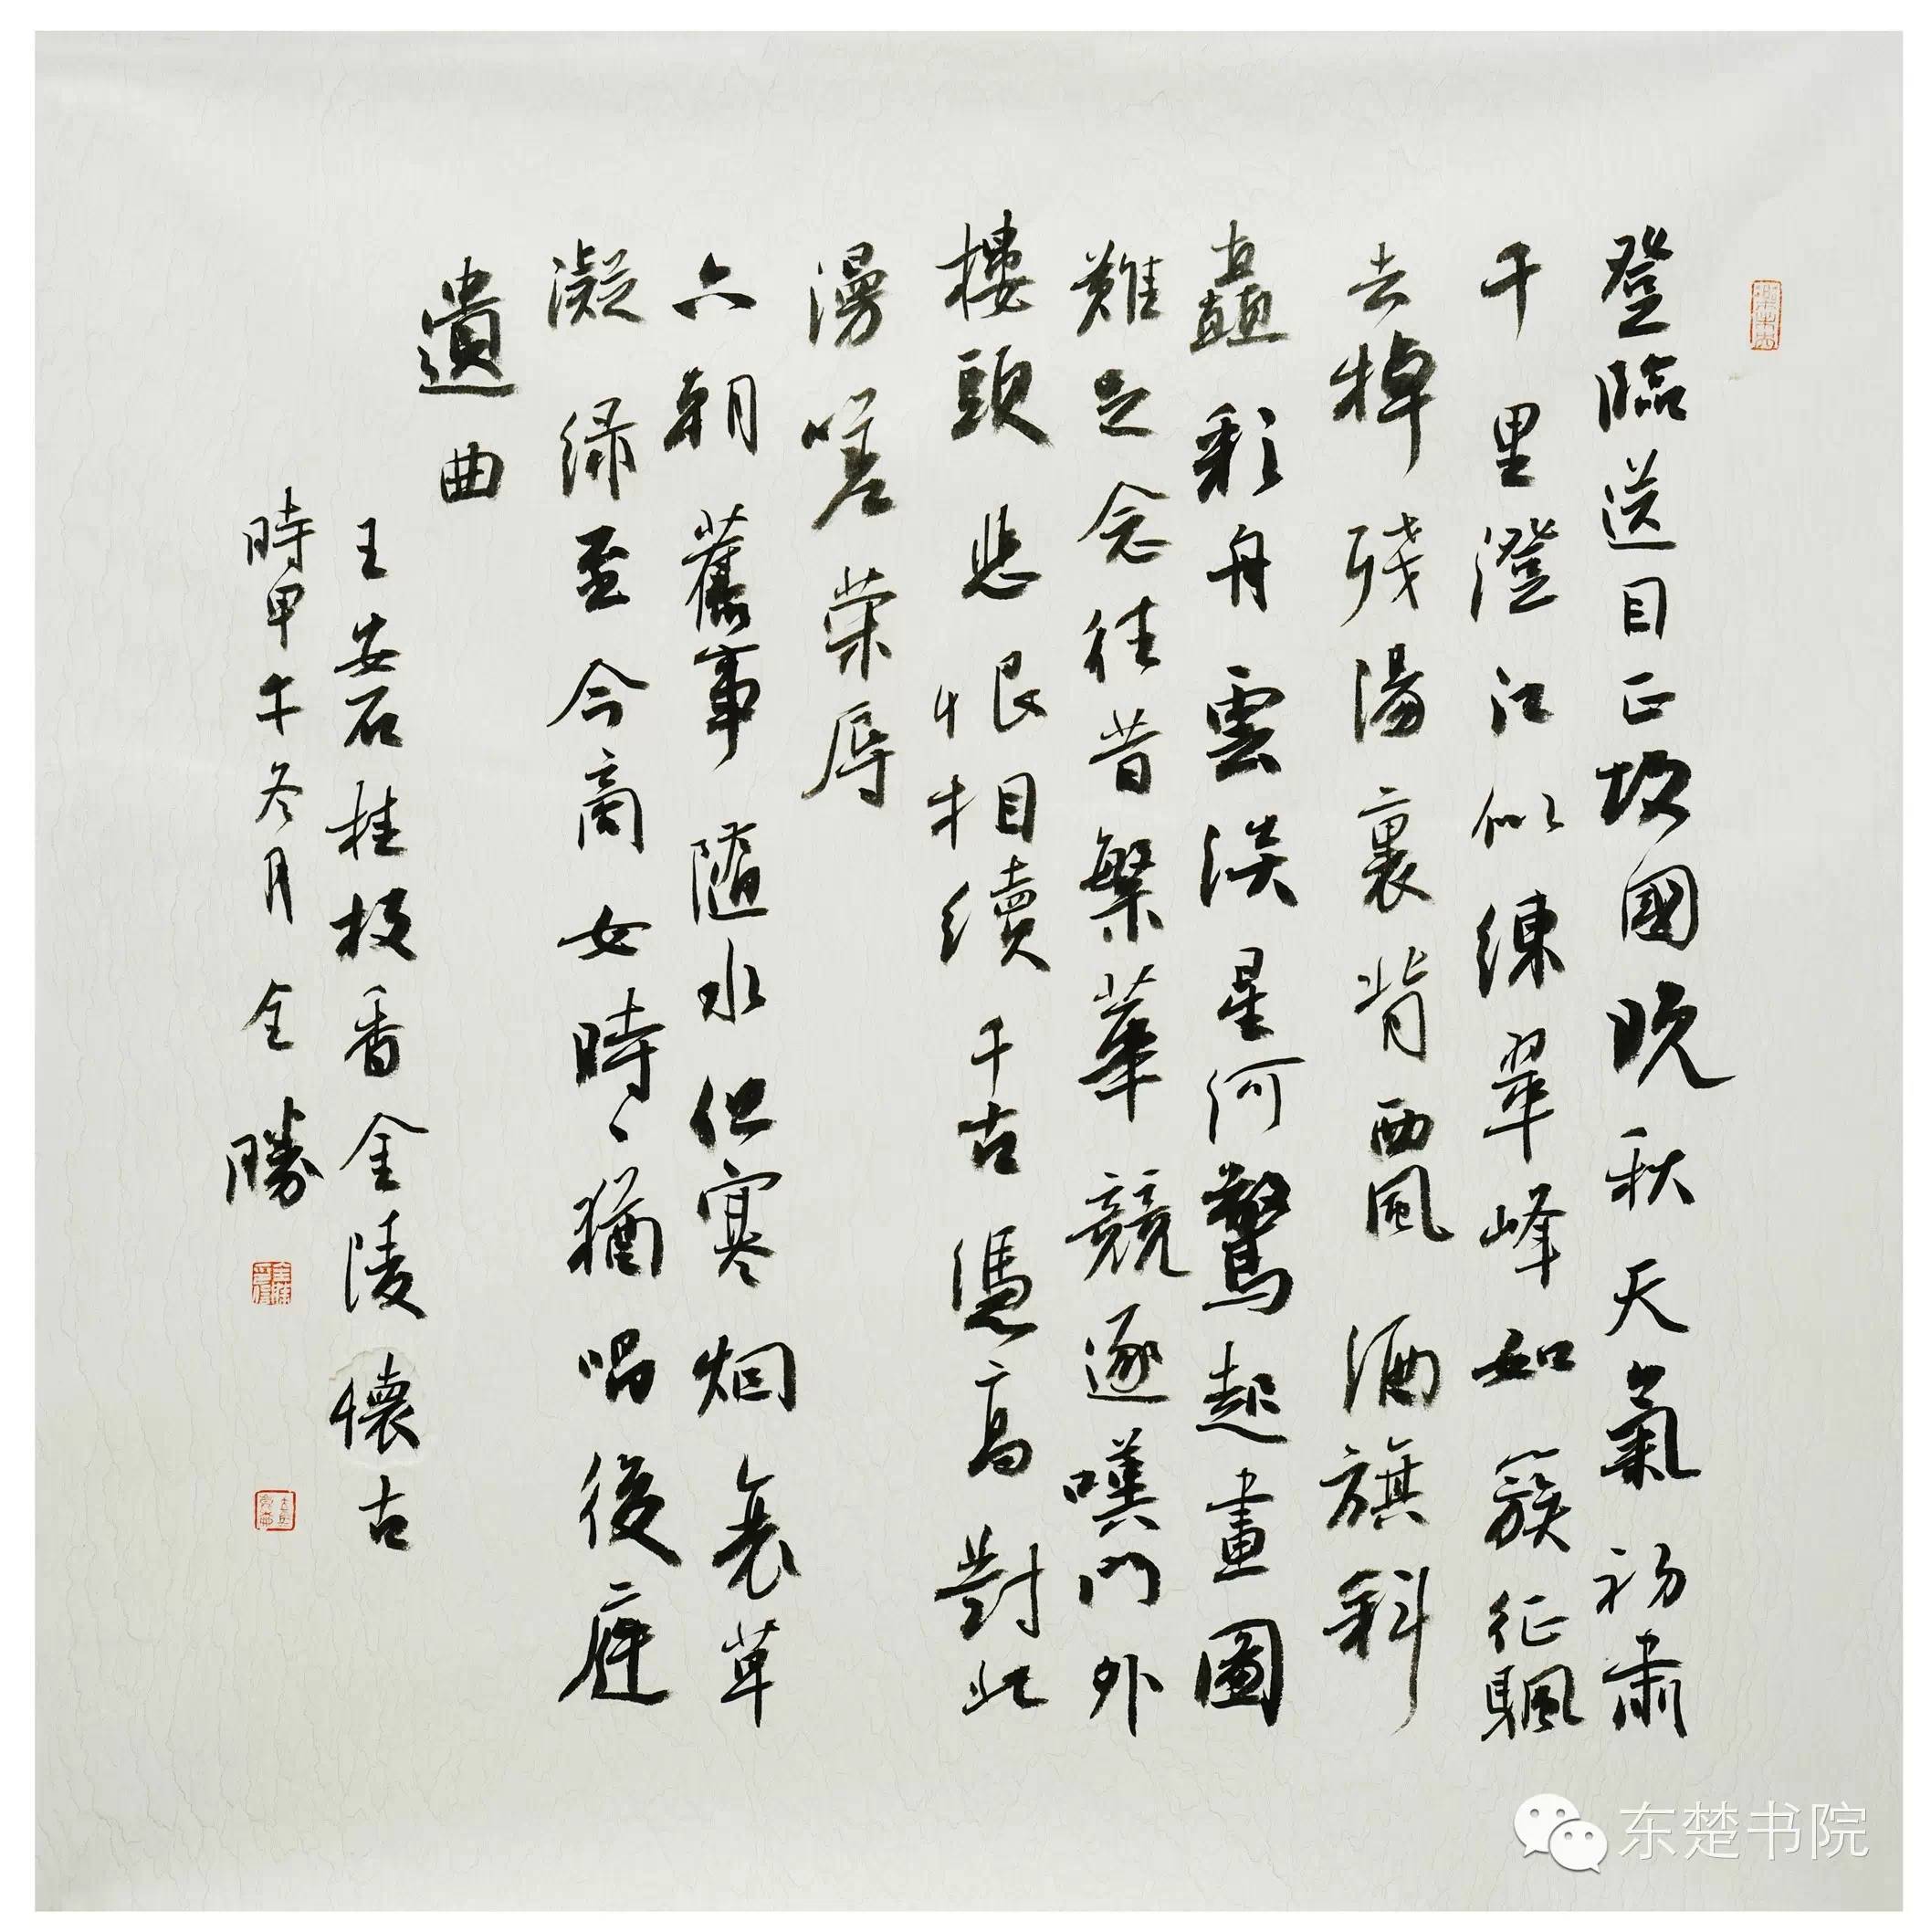 登臨送目正故國晚秋天氣初肅
千里澄江似練翠峰如簇征颿
去棹残陽裏背西風酒旗斜
矗彩舟雲淡星河鷺起畫圖
難足念往昔繁華競逐嘆門外
樓頭悲恨相續千古憑高對此
漫嗟榮辱
六朝舊事隨水但寒烟衰草
凝緑至今商女時〻猶唱後庭
遺曲
王安石桂枝香金陵懷古
時甲午冬月全勝
东楚书院